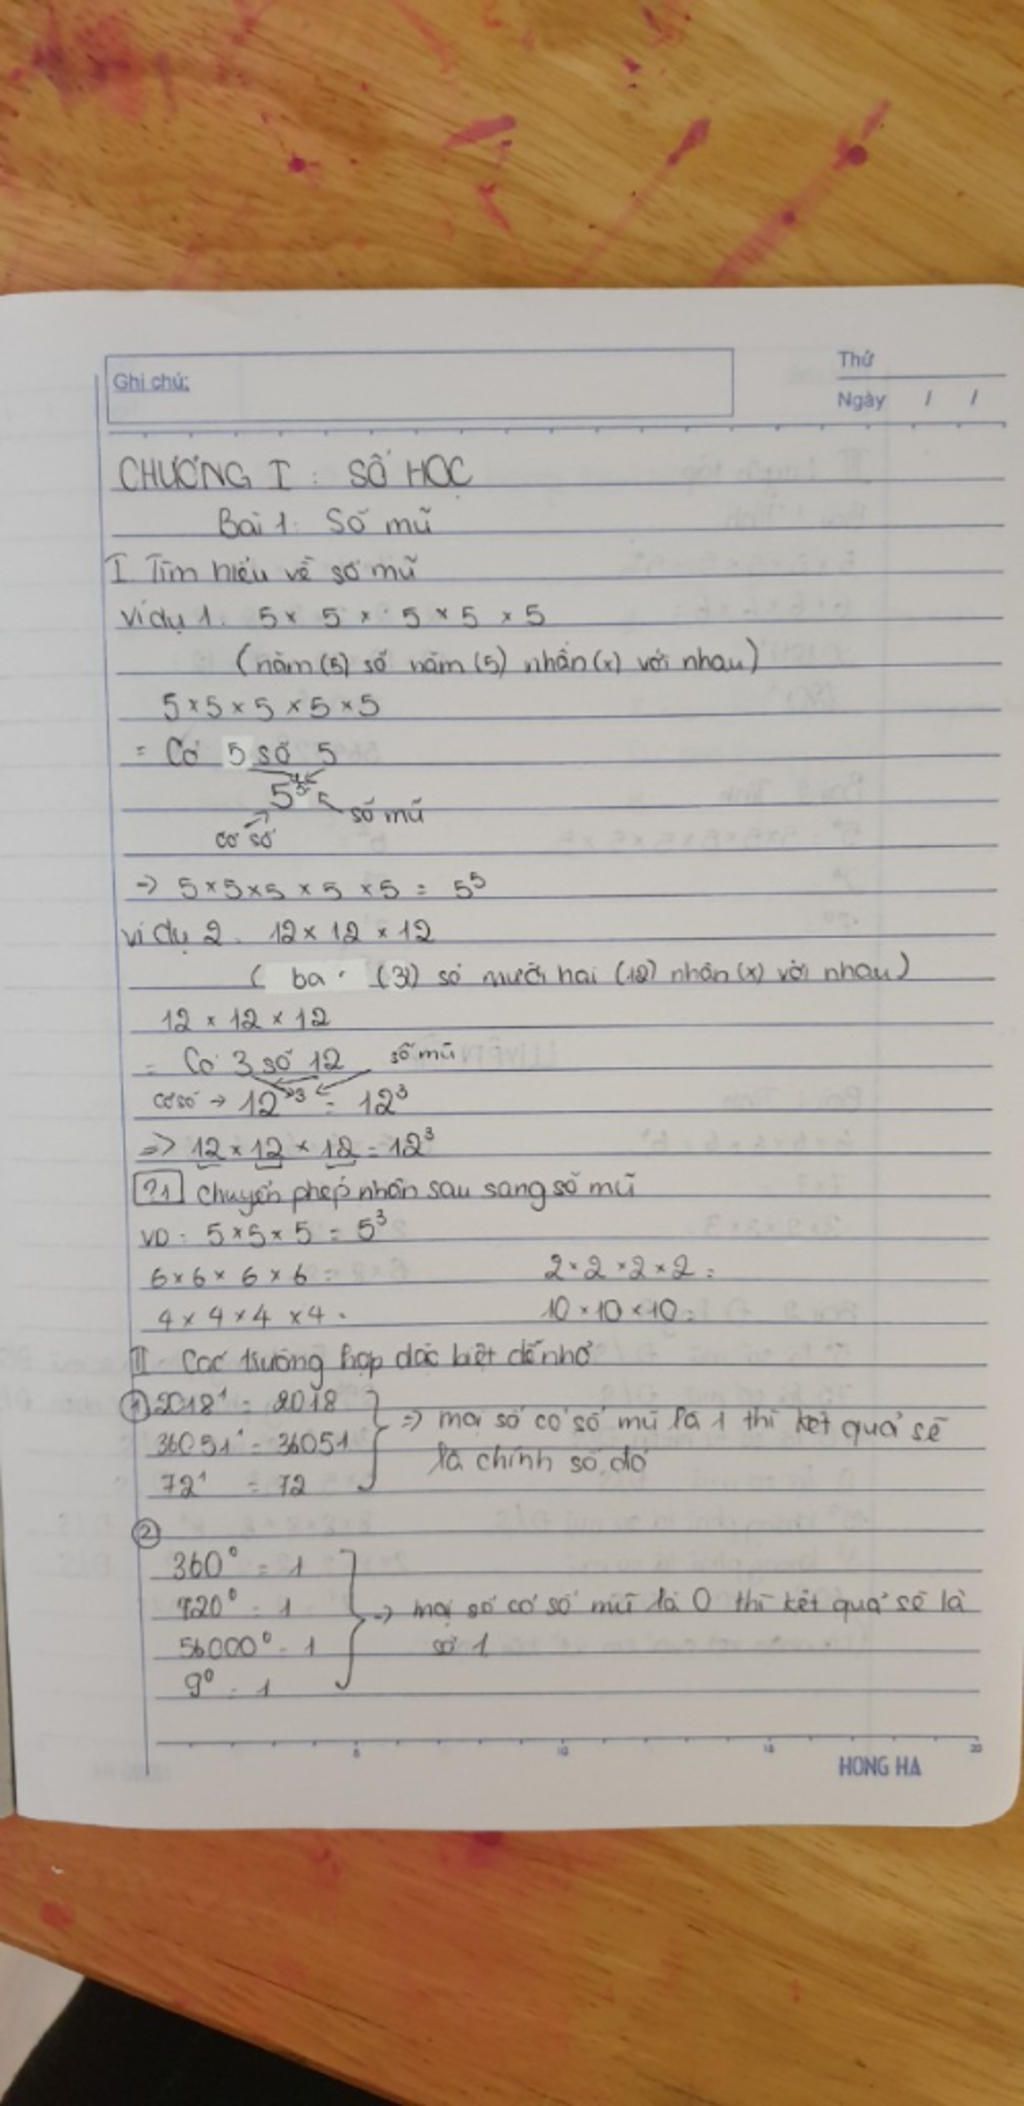 Ghi chú:
Thứ
Ngày / /
CHƯƠNG I : SỐ HỌC
Bài 1: Số mũ
I Tìm hiểu về số mũ
Ví dụ 1. 5 × 5 × 5 × 5 × 5
(năm (5) số năm (5) nhân (x) với nhau)
5 × 5 × 5 × 5 × 5
= Có 5 số 5
5⁵ số mũ
cơ số
=> 5 × 5 × 5 × 5 × 5 = 5⁵
Ví dụ 2. 12 × 12 × 12
( ba (3) số mười hai (12) nhân (x) với nhau)
12 × 12 × 12
= Có 3 số 12 số mũ
cơ số → 12³ = 12³
=> 12 × 12 × 12 = 12³
?1 Chuyển phép nhân sau sang số mũ
VD: 5 × 5 × 5 = 5³
6 × 6 × 6 × 6 = 2 × 2 × 2 × 2 =
4 × 4 × 4 × 4 = 10 × 10 × 10 =
II Các trường hợp đặc biệt dễ nhớ
① 2018¹ = 2018
36051¹ = 36051
72¹ = 72
=> mọi số có số mũ là 1 thì kết quả sẽ
là chính số đó
②
360⁰ = 1
920⁰ = 1
56000⁰ = 1
9⁰ = 1
=> mọi số có số mũ là 0 thì kết quả sẽ là
số 1
5 10 15 20
HONG HA